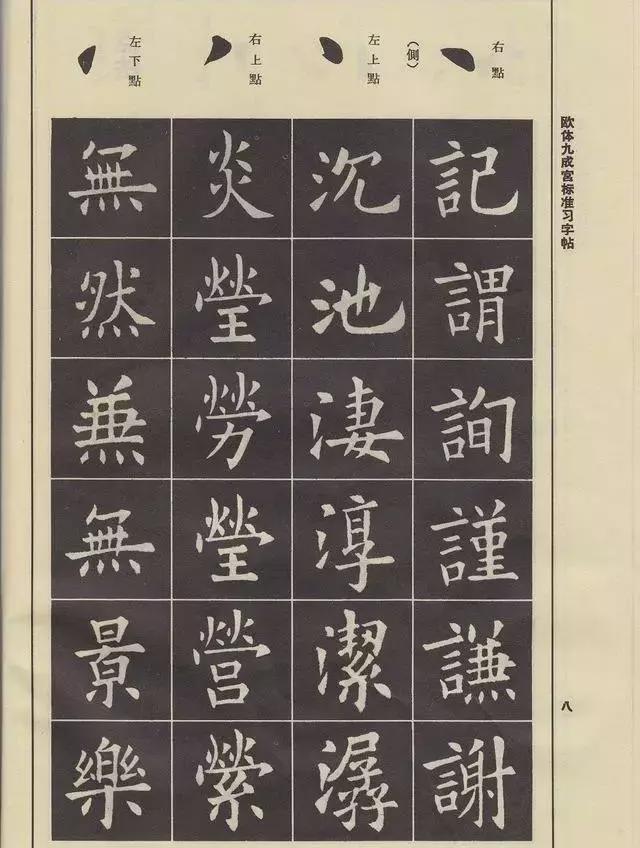 欧体九成宫标准习字帖
八
右點
記謂詢謹謙謝
（側）
左上點
沉池淒淳潔潺
右上點
炎瑩勞瑩營縈
左下點
無然兼無景樂